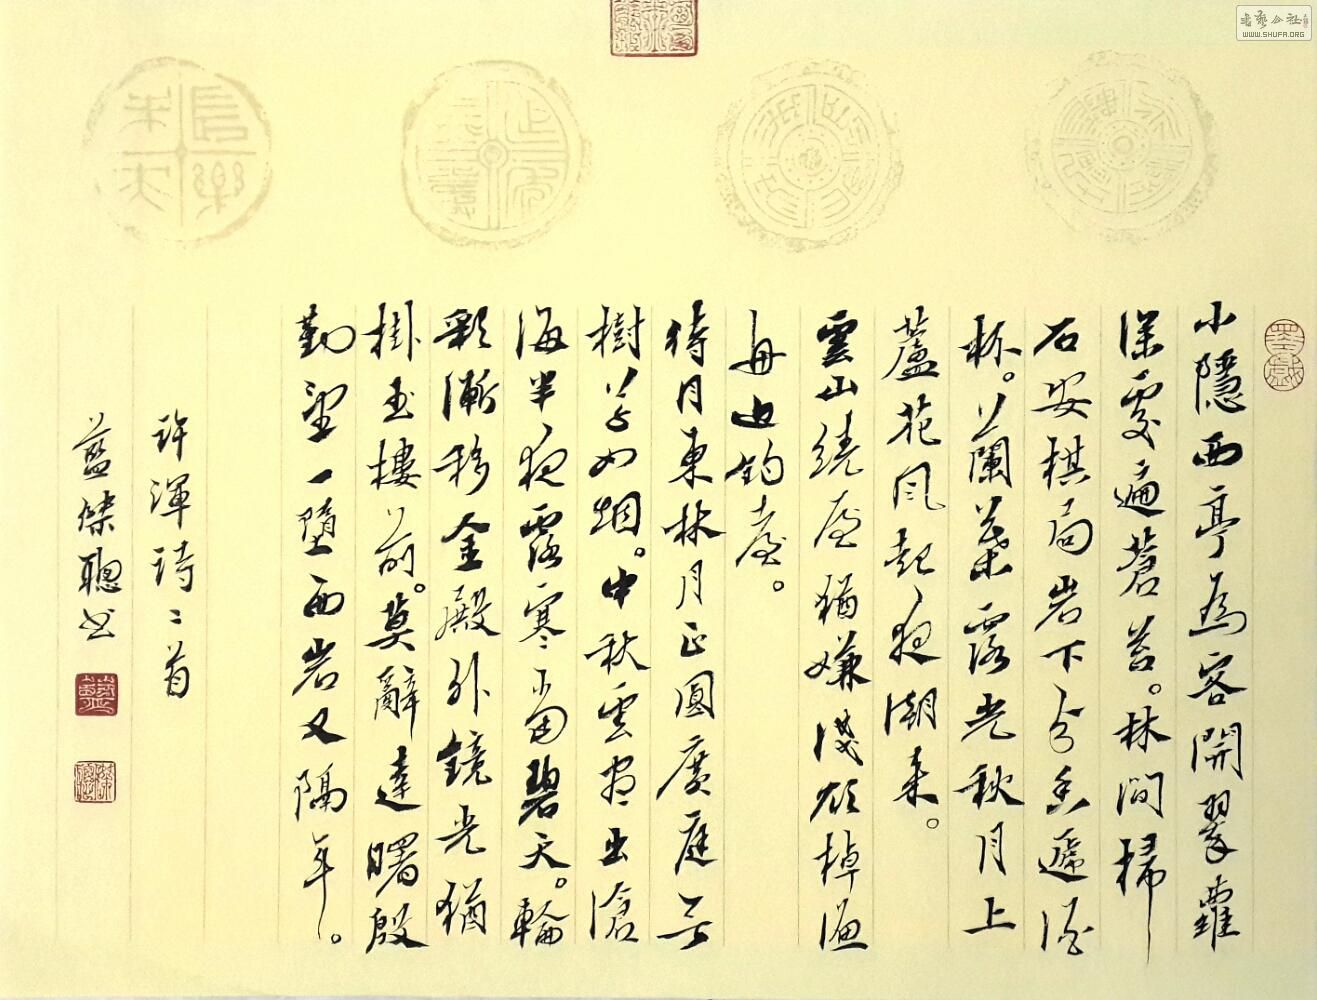 小隱西亭為客開翠蘿
深處遍蒼苔。林間掃
石安棋局岩下分香遞酒
杯。蘭葉露光秋月上
蘆花風起夜潮來。
雲山繞屋猶嫌淺欲棹漁
舟近釣臺。
待月東林月正圓廣庭無
樹草如烟。中秋雲盡出滄
海半夜露寒當碧天。輪
彩漸移金殿外鏡光猶
掛玉樓前。莫辭達曙殷
勤望一墮西岩又隔年。
許渾詩二首
藍聰书
WWW.SHUFA.ORG